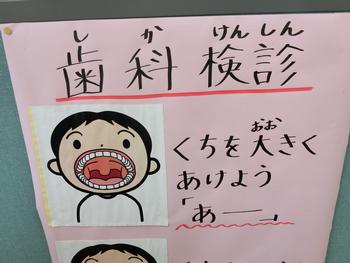 しか けんしん
歯科検診
くちを大きく
おお
あけよう
「あー」